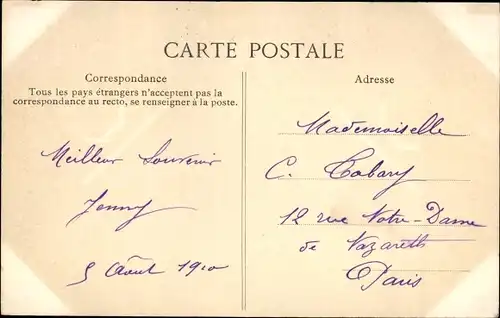 CARTE POSTALE
Correspondance
Tous les pays étrangers n'acceptent pas la
correspondance au recto, se renseigner à la poste.
Adresse
Meilleur Souvenir
Jenny
5 Août 1910
Mademoiselle
C. Cobary
12 rue Notre-Dame
de Nazareth
Paris